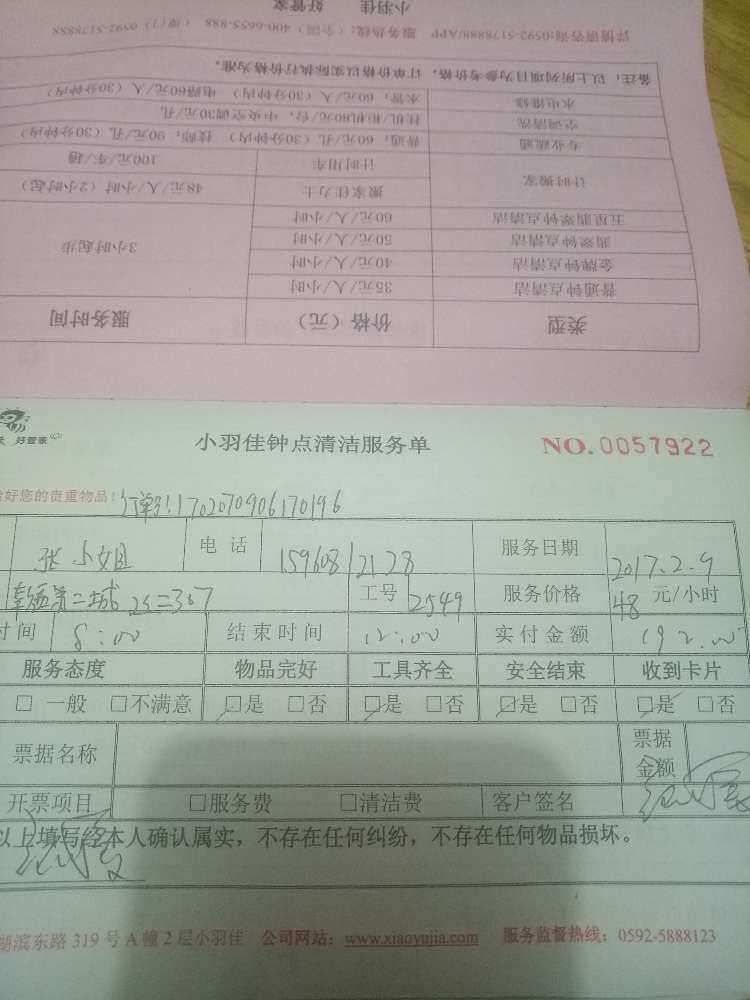 小羽佳 好管家
详情请咨询:0592-5178888/APP 服务热线:（全国）400-6655-888 （厦门）0592-5178888
备注：以上所列项目为参考价格，订单价格以实际执行价格为准。
水电维修 水管：60元/人（30分钟内） 电路60元/人（30分钟内）
空调清洗 挂机/柜机80元/台，中央空调30元/孔
专业疏通 普通：60元/孔（30分钟内） 90元/孔（30分钟内）
计时搬家 计时用车 100元/车/趟
搬家佳力士 48元/人/小时（2小时起）
五星翡翠钟点清洁 60元/人/小时
翡翠钟点清洁 50元/人/小时 3小时起步
金牌钟点清洁 40元/人/小时
普通钟点清洁 35元/人/小时
类型 价格（元） 服务时间
好管家
小羽佳钟点清洁服务单 NO.0057922
好您的贵重物品！订单号:1702070906170196
张小姐 电话 15960812128 服务日期 2017.2.9
第二城 工号 2549 服务价格 48 元/小时
时间 8:00 结束时间 12:00 实付金额 192.00
服务态度 物品完好 工具齐全 安全结束 收到卡片
□ 一般 □不满意 □是 □否 □是 □否 □是 □否 □是 □否
票据名称 票据金额
开票项目 □服务费 □清洁费 客户签名
以上填写经本人确认属实，不存在任何纠纷，不存在任何物品损坏。
湖滨东路 319 号 A 幢 2 层小羽佳 公司网站：www.xiaoyujia.com 服务监督热线：0592-5888123